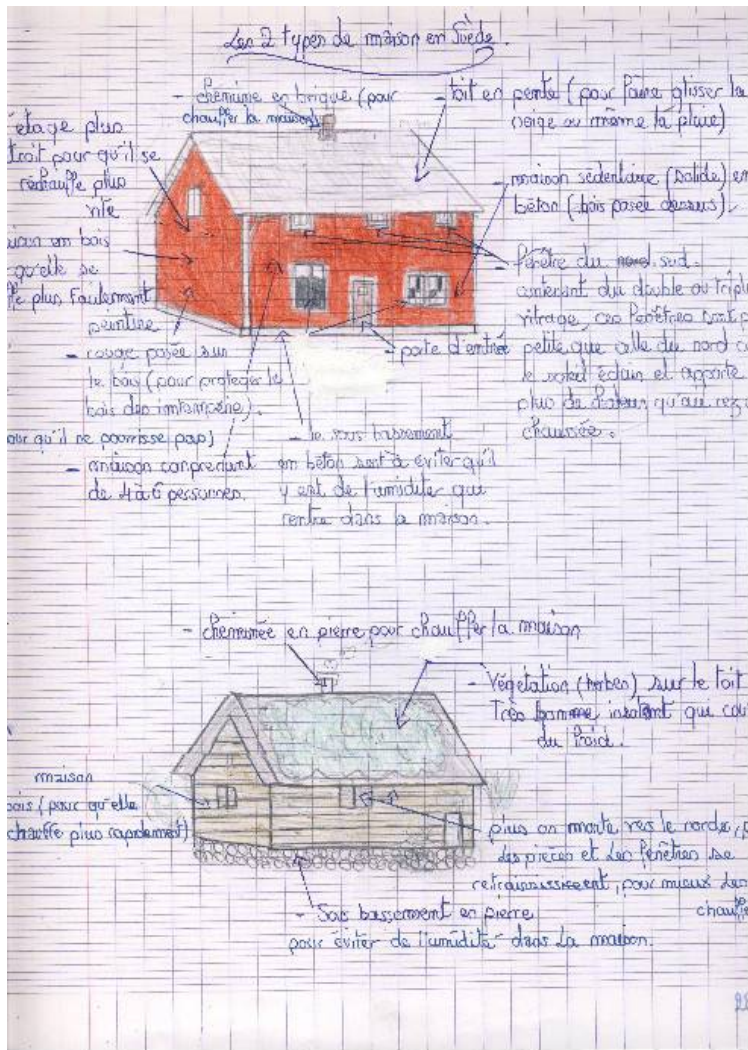 Les 2 types de maison en Suède.
- cheminé en brique (pour
chauffer la maison)
- toit en pente (pour faire glisser la
neige ou même la pluie)
étage plus
troit pour qu'il se
réchauffe plus
vite
- maison sédentaire (solide) en
béton (bois posée dessus).
en bois
qu'elle se
plus facilement
- fenêtre du nord sud
contenant du double ou triple
vitrage, ces fenêtres sont p
petite que celle du nord c
le soleil éclair et apporte
plus de chaleur qu'au rez
chaussée.
peinture
- rouge posée sur
le bois (pour proteger le
bois des intemperie).
our qu'il ne pourrisse pas)
- porte d'entrée
- maison comprenant
de 4 à 6 personnes.
- le sous bassement
en béton sert à éviter qu'il
y est de l'umidité qui
rentre dans la maison.
- cheminée en pierre pour chauffer la maison
- Végetation (herbes) sur le toit
Très bonne isolant qui
du froid.
maison
bois (pour qu'elle
chauffe plus rapidement)
plus on monte vers le nord,
des pièces et les fenêtres se
retraississent, pour mieux les
chauffe
- Sous bassement en pierre
pour éviter de l'umidité dans la maison.